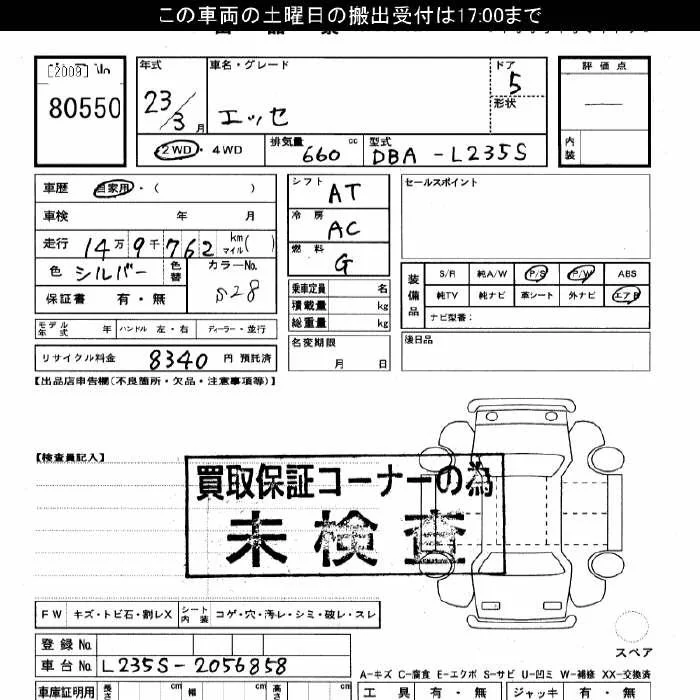 この車両の土曜日の搬出受付は17:00まで
[2009]
80550
年式 車名・グレード ドア 評価点
23/3月 エッセ 5
形状
内装
2WD・4WD 排気量 660 cc 型式 DBA-L235S
車歴 自家用・( )
車検 年 月
走行 14万9千762 km マイル( )
色 シルバー 色替 カラーNo. S28
保証書 有・無
モデル年式 年 ハンドル 左・右 ディーラー・並行
リサイクル料金 8340 円 預託済
シフト AT
冷房 AC
燃料 G
乗車定員 名
積載量 kg
総重量 kg
名変期限
月 日
セールスポイント
装備品 S/R 純A/W P/S P/W ABS
純TV 純ナビ 革シート 外ナビ エアB
ナビ型番:
後日品
【出品店申告欄(不良箇所・欠品・注意事項等)】
【検査員記入】
買取保証コーナーの為
未検査
FW キズ・トビ石・割レX シート内装 コゲ・穴・汚レ・シミ・破レ・スレ
スペア
登録No.
車台No. L235S-2056858
A-キズ C-腐食 E-エクボ S-サビ U-凹ミ W-補修 XX-交換済
車庫証明用 長さ cm 幅 cm 高さ cm
工具 有・無 ジャッキ 有・無